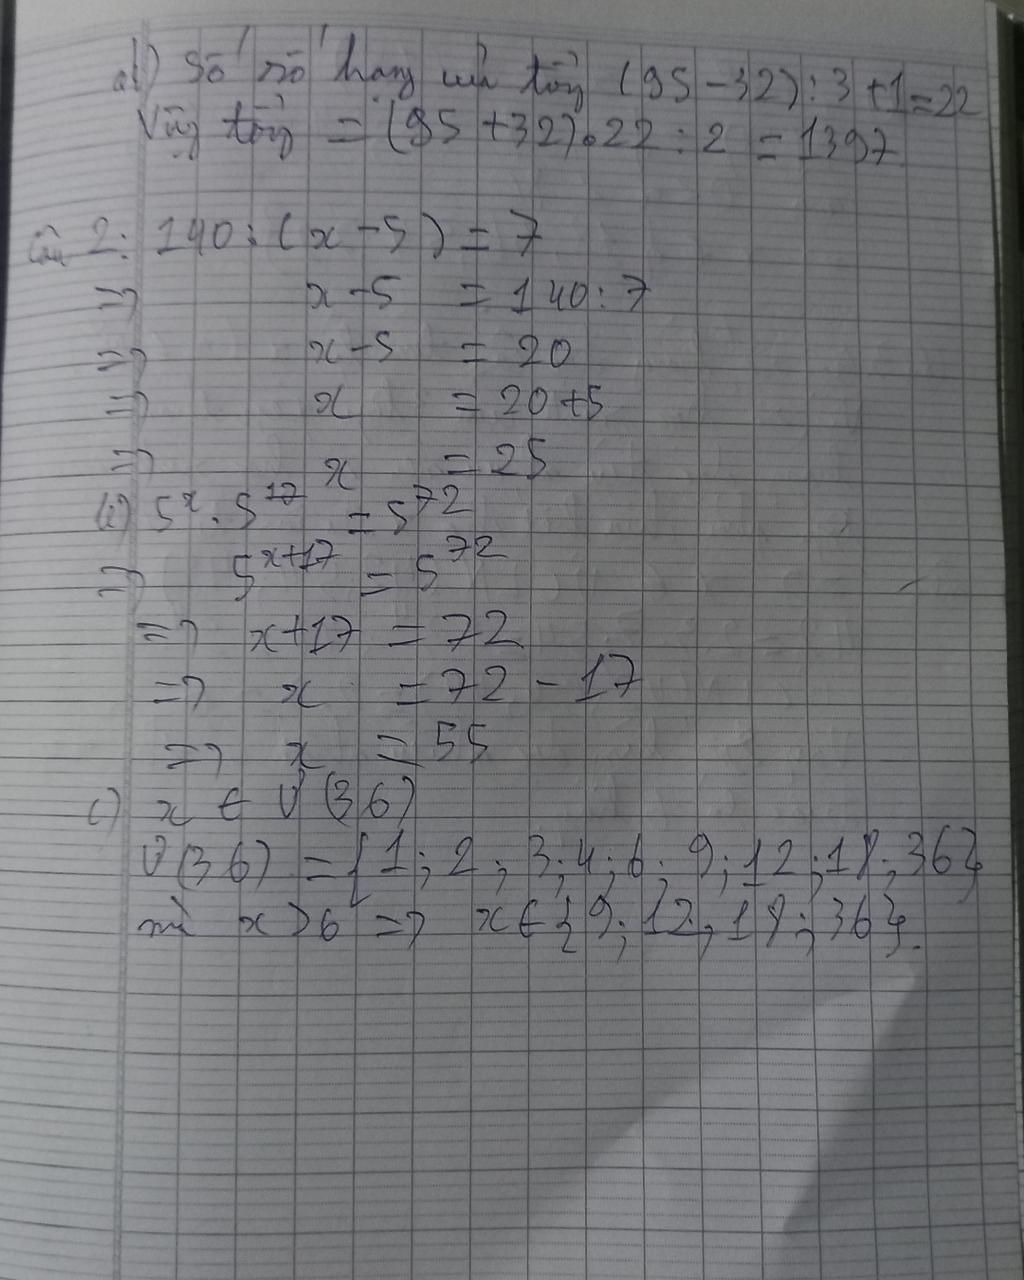 d) Số số hạng của tổng (95 - 32) : 3 + 1 = 22
Vậy tổng = (95 + 32) . 22 : 2 = 1397
Câu 2: 140 : (x - 5) = 7
=> x - 5 = 140 : 7
=> x - 5 = 20
=> x = 20 + 5
=> x = 25
5^x . 5^17 = 5^72
=> 5^x+17 = 5^72
=> x + 17 = 72
=> x = 72 - 17
=> x = 55
c) x ∈ Ư(36)
Ư(36) = {1; 2; 3; 4; 6; 9; 12; 18; 36}
mà x > 6 => x ∈ {9; 12; 18; 36}.